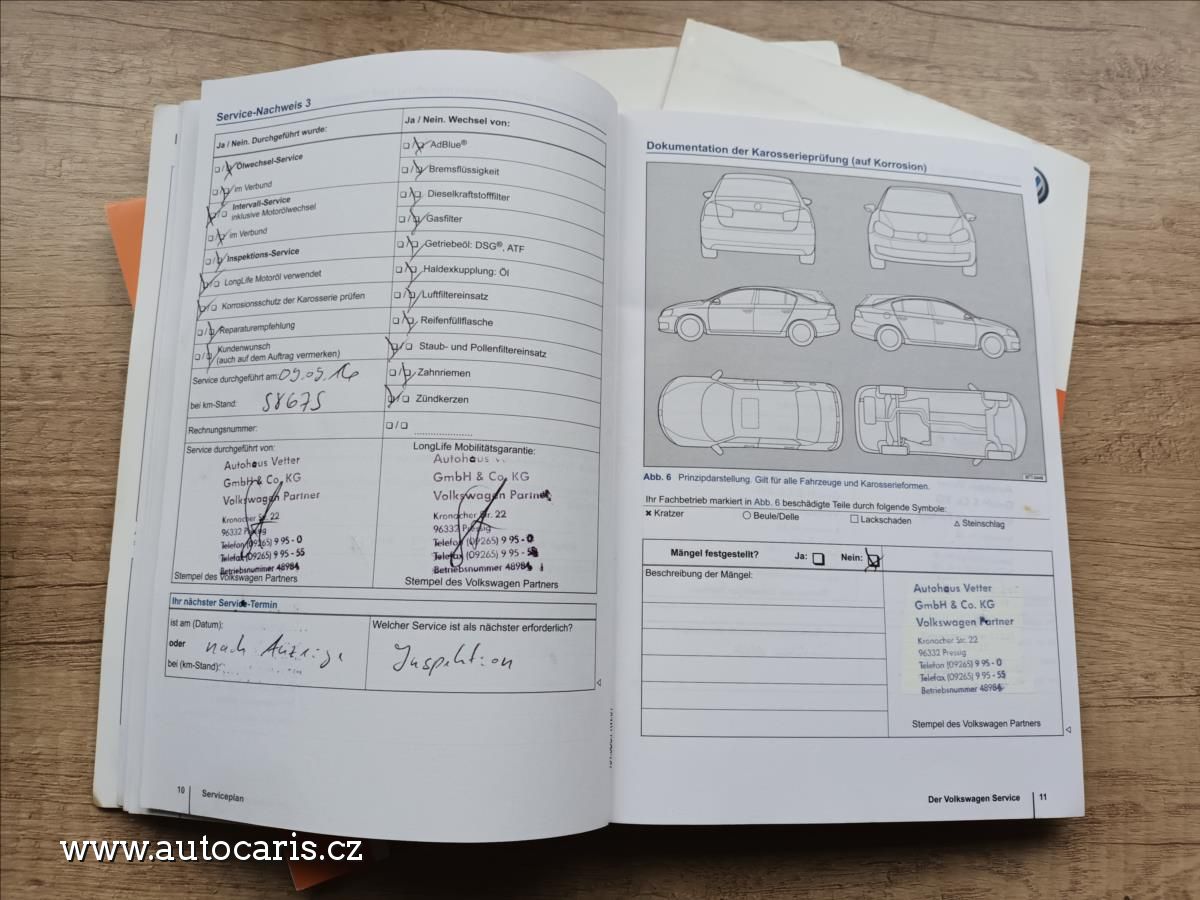 Service-Nachweis 3
Ja / Nein. Durchgeführt wurde:
Ölwechsel-Service
im Verbund
Intervall-Service
inklusive Motorölwechsel
im Verbund
Inspektions-Service
LongLife Motoröl verwendet
Korrosionsschutz der Karosserie prüfen
Reparaturempfehlung
Kundenwunsch
(auch auf dem Auftrag vermerken)
Service durchgeführt am: 09.09.16
bei km-Stand: 58675
Rechnungsnummer:
Ja / Nein. Wechsel von:
AdBlue®
Bremsflüssigkeit
Dieselkraftstofffilter
Gasfilter
Getriebeöl: DSG®, ATF
Haldexkupplung: Öl
Luftfiltereinsatz
Reifenfüllflasche
Staub- und Pollenfiltereinsatz
Zahnriemen
Zündkerzen
Service durchgeführt von:
Autohaus Vetter
GmbH & Co. KG
Volkswagen Partner
Kronacher Str. 22
96332 Pressig
Telefon (09265) 9 95 - 0
Telefax (09265) 9 95 - 55
Betriebsnummer 48984
Stempel des Volkswagen Partners
LongLife Mobilitätsgarantie:
Autohaus
GmbH & Co. KG
Volkswagen Partner
Kronacher Str. 22
96332 Pressig
Telefon (09265) 9 95 - 0
Telefax (09265) 9 95 - 55
Betriebsnummer 48984
Stempel des Volkswagen Partners
Ihr nächster Service-Termin
ist am (Datum):
oder nach Anzeige
bei (km-Stand):
Welcher Service ist als nächster erforderlich?
Inspektion
10 Serviceplan
Dokumentation der Karosserieprüfung (auf Korrosion)
Abb. 6 Prinzipdarstellung. Gilt für alle Fahrzeuge und Karosserieformen.
Ihr Fachbetrieb markiert in Abb. 6 beschädigte Teile durch folgende Symbole:
Kratzer Beule/Delle Lackschaden Steinschlag
Mängel festgestellt? Ja: Nein:
Beschreibung der Mängel:
Autohaus Vetter
GmbH & Co. KG
Volkswagen Partner
Kronacher Str. 22
96332 Pressig
Telefon (09265) 9 95 - 0
Telefax (09265) 9 95 - 55
Betriebsnummer 48984
Stempel des Volkswagen Partners
Der Volkswagen Service 11
www.autocaris.cz